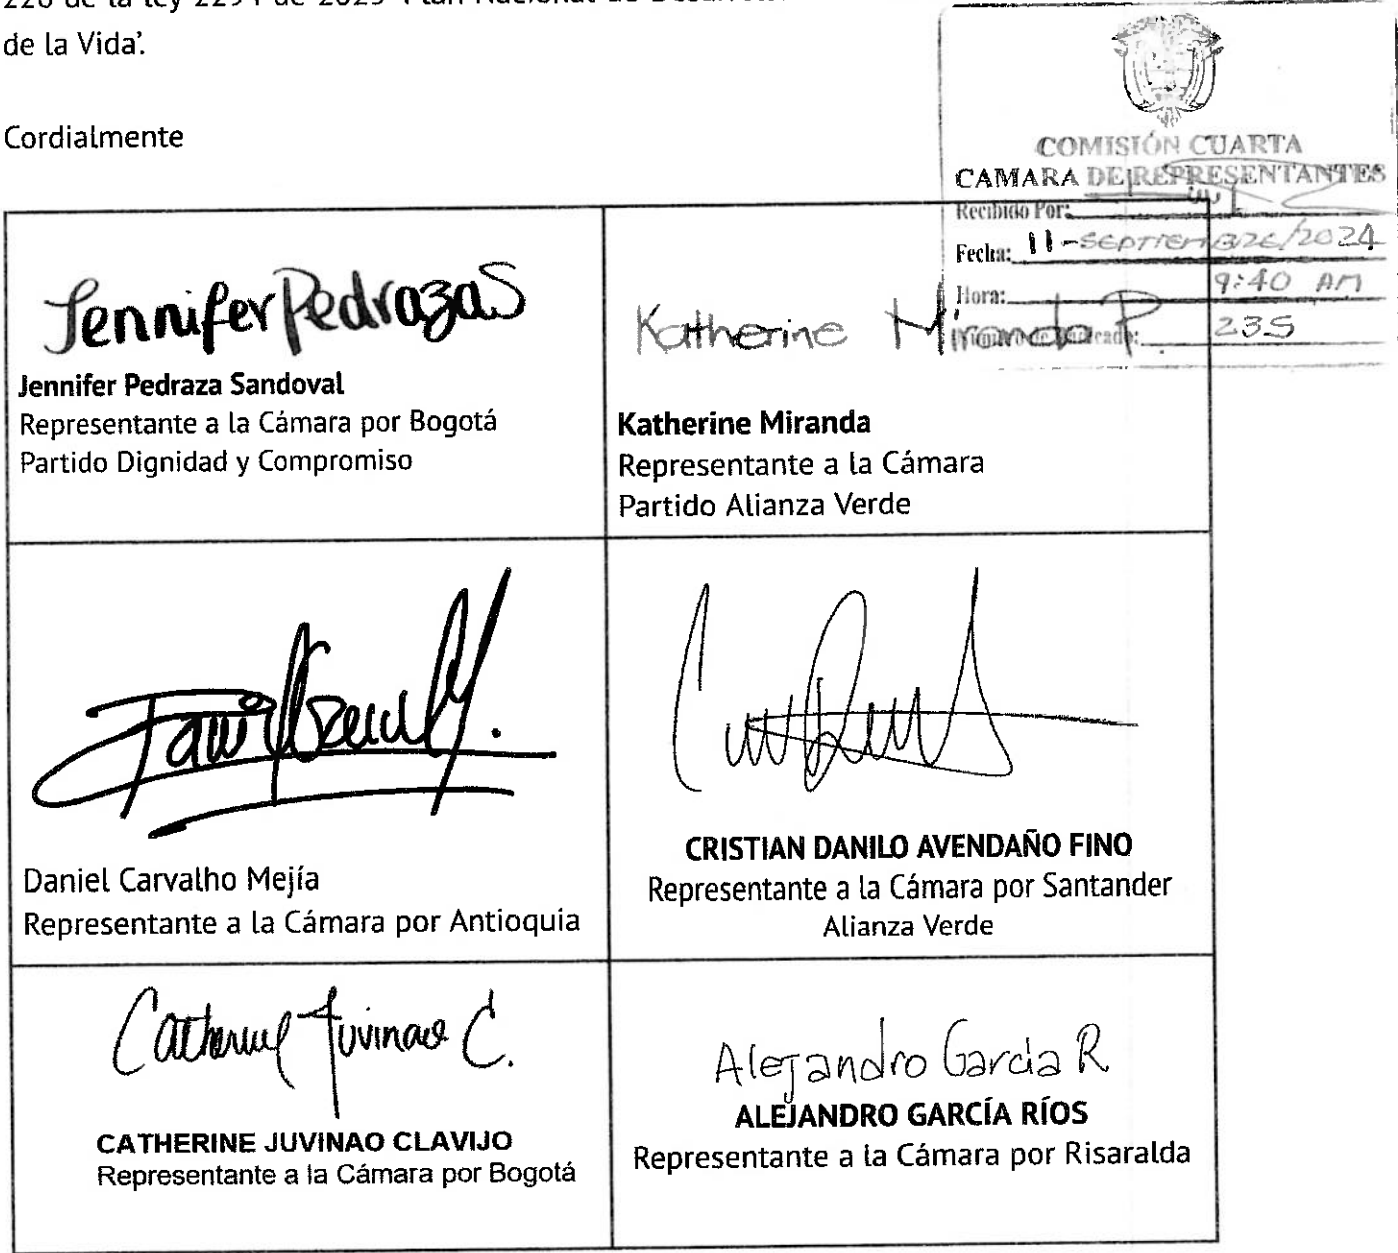 226 de la ley 2294 de 2023 'Plan Nacional de Desarrollo
de la Vida'.
Cordialmente
COMISIÓN CUARTA
CAMARA DE REPRESENTANTES
Recibido Por:
Fecha: 11-SEPTIEMBRE/2024
Hora: 9:40 AM
235
Jennifer Pedraza S
Jennifer Pedraza Sandoval
Representante a la Cámara por Bogotá
Partido Dignidad y Compromiso
Katherine Miranda P.
Katherine Miranda
Representante a la Cámara
Partido Alianza Verde
Daniel Carvalho Mejía
Representante a la Cámara por Antioquia
CRISTIAN DANILO AVENDAÑO FINO
Representante a la Cámara por Santander
Alianza Verde
Catherine Juvinao C.
CATHERINE JUVINAO CLAVIJO
Representante a la Cámara por Bogotá
Alejandro García R
ALEJANDRO GARCÍA RÍOS
Representante a la Cámara por Risaralda